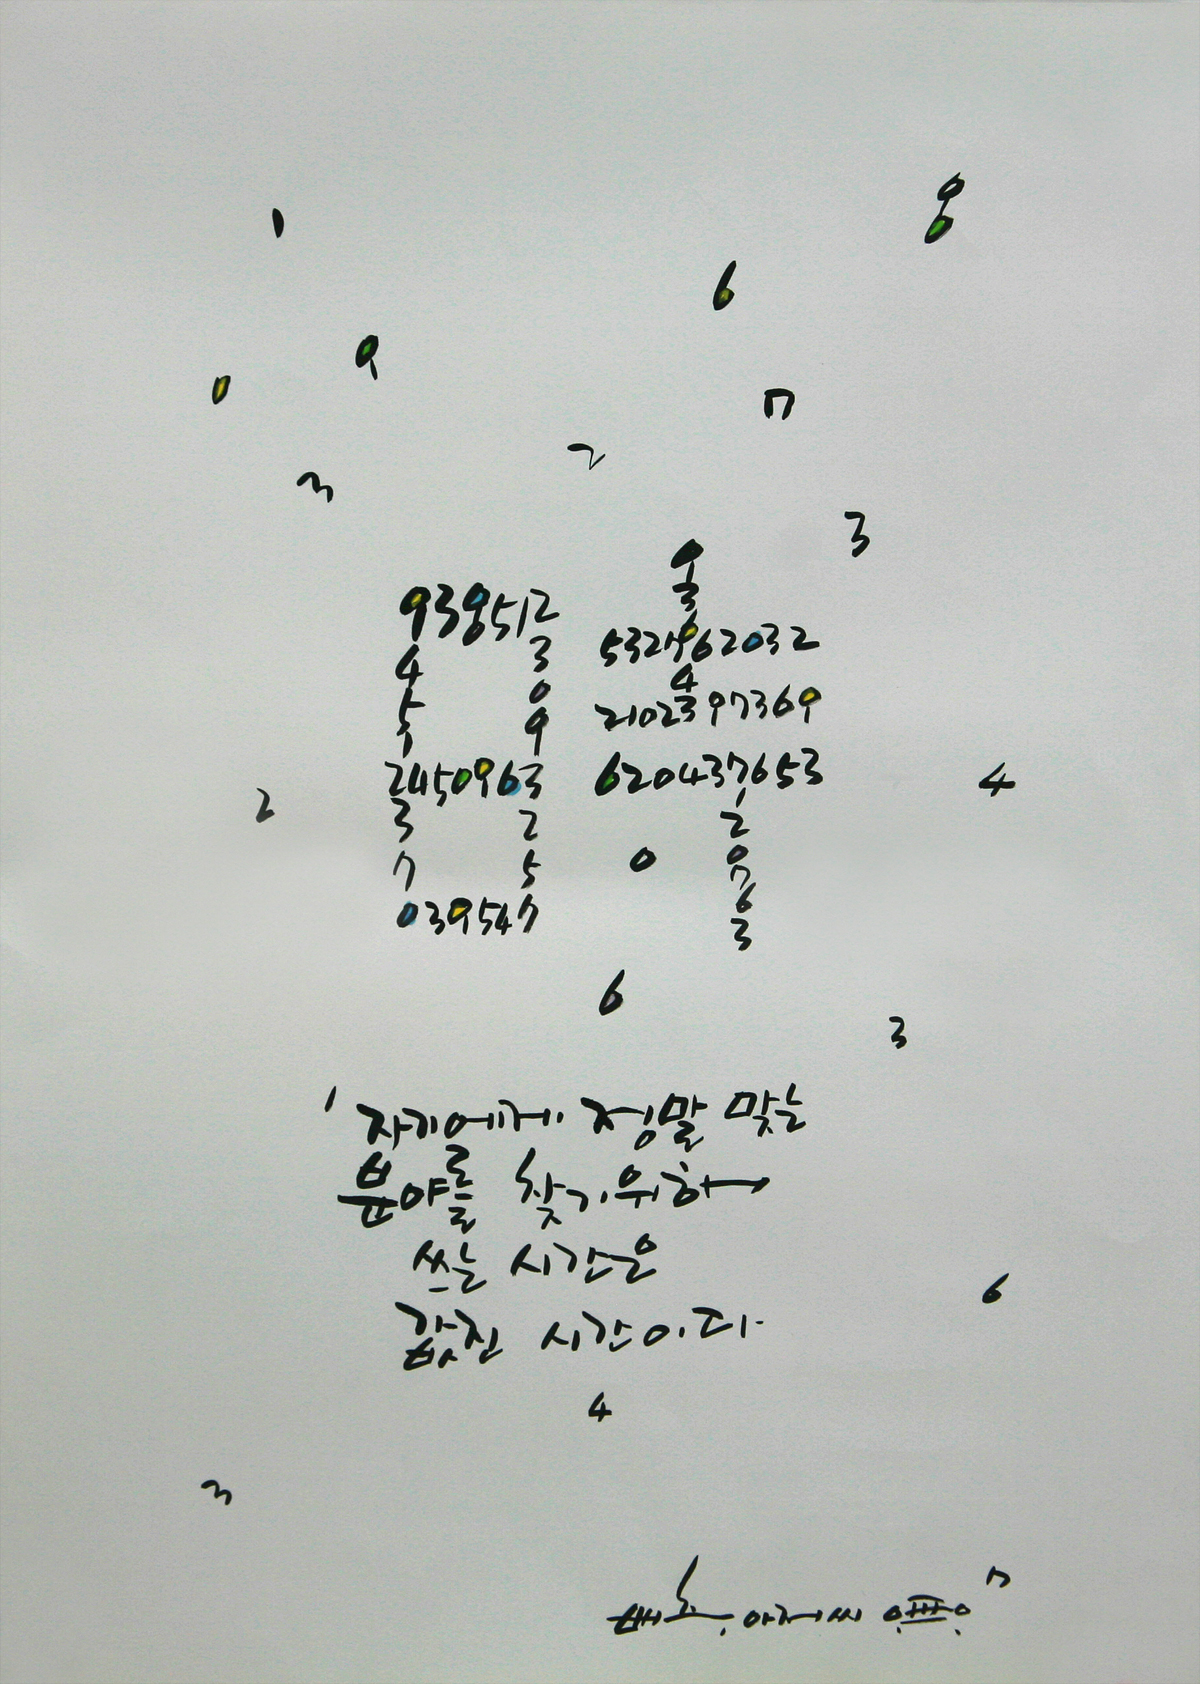 1
8
6
9
0
7
2
3
3
9
3
9398512
6
4
3
532 9620 32
5
0
4
9
2102397369
2450963
620437653
4
2
3
2
2
7
5
0
0
7
039547
6
3
6
3
1
자기에게 정말 맞는
분야를 찾기위해
쓰는 시간은
값진 시간이다.
6
4
3
7